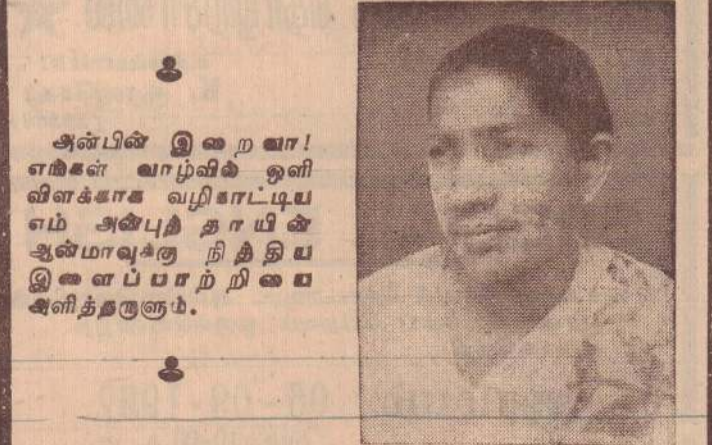 அன்பின் இறைவா!
எங்கள் வாழ்வில் ஒளி
விளக்காக வழிகாட்டிய
எம் அன்புத் தாயின்
ஆன்மாவுக்கு நித்திய
இளைப்பாற்றியை
அளித்தருளும்.